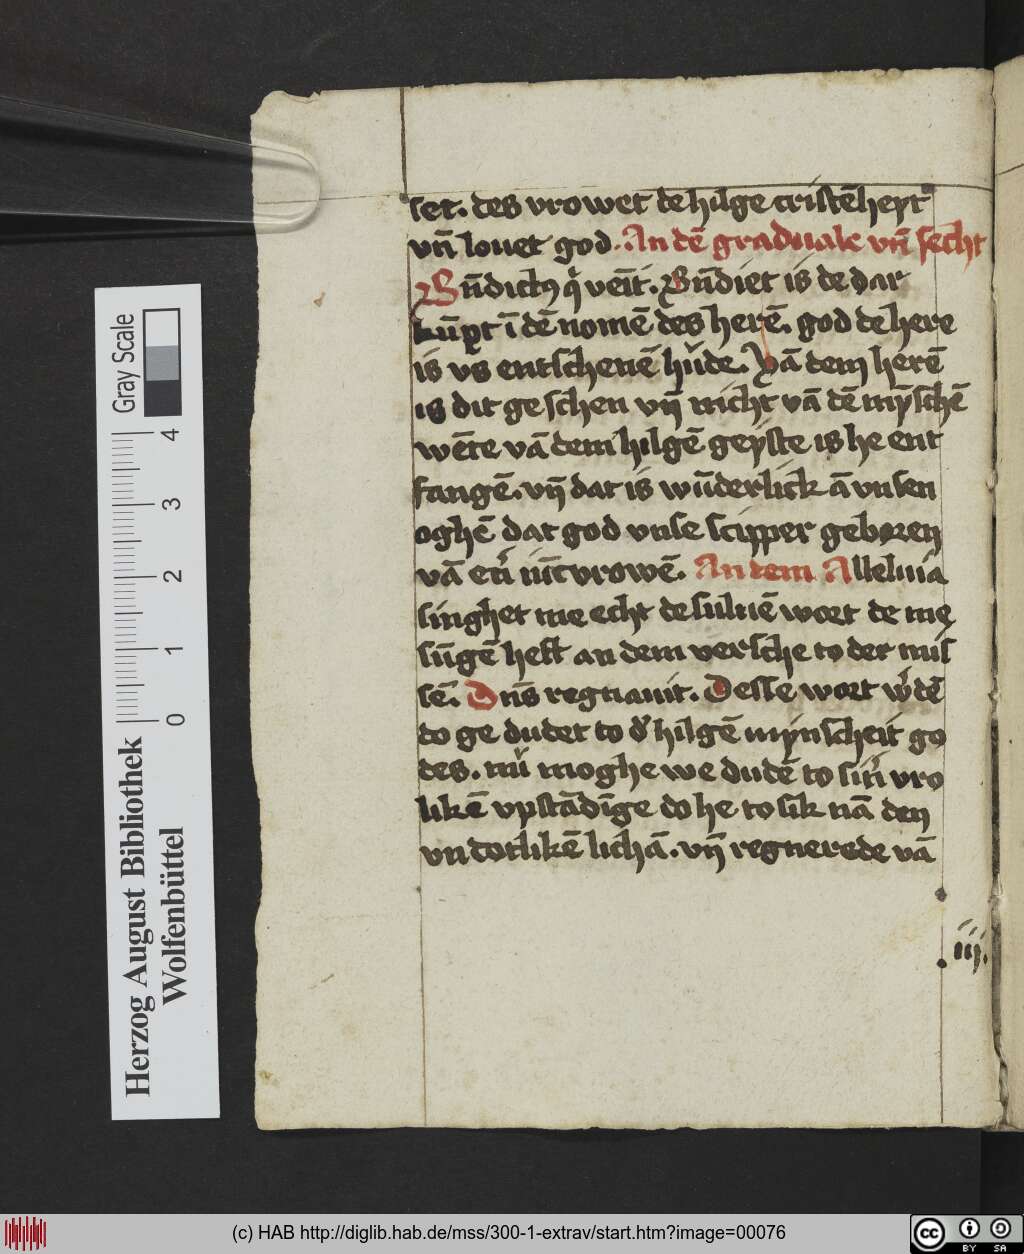 set. des vrowet de hilge cristēheyt
vn̄ louet god. An dē graduale vn̄ secht
Bn̄dictꝰ q̇ venīt. Bn̄diet is de dar
kūpt ī dē nomē des herē. god de here
is vs entschenē hůde. Vā dem herē
is dit geschen vn̄ nicht vā dē mȳschē
wēte vā dem hilgē geyste is he ent
fangē. vn̄ dat is wūderlick ā vnsen
oghē dat god vnse scipper geboren
vā eṅ iūcvrowē. An dem Alleluia
singhet me echt de suluē wort de me
sūgē heft an dem versche to der mis
sē. Dn̄s regnauit. Desse wort w̓dē
to ge dudet to d̓ hilgē mynscheit go
des. nů moghe we dudē to siṅ vro
likē vpstādīge do he to sik nā den
vndotlikē lichā. vn̄ regnerede vā
iij.
Gray Scale
0 1 2 3 4
Herzog August Bibliothek
Wolfenbüttel
(c) HAB http://diglib.hab.de/mss/300-1-extrav/start.htm?image=00076
cc BY SA